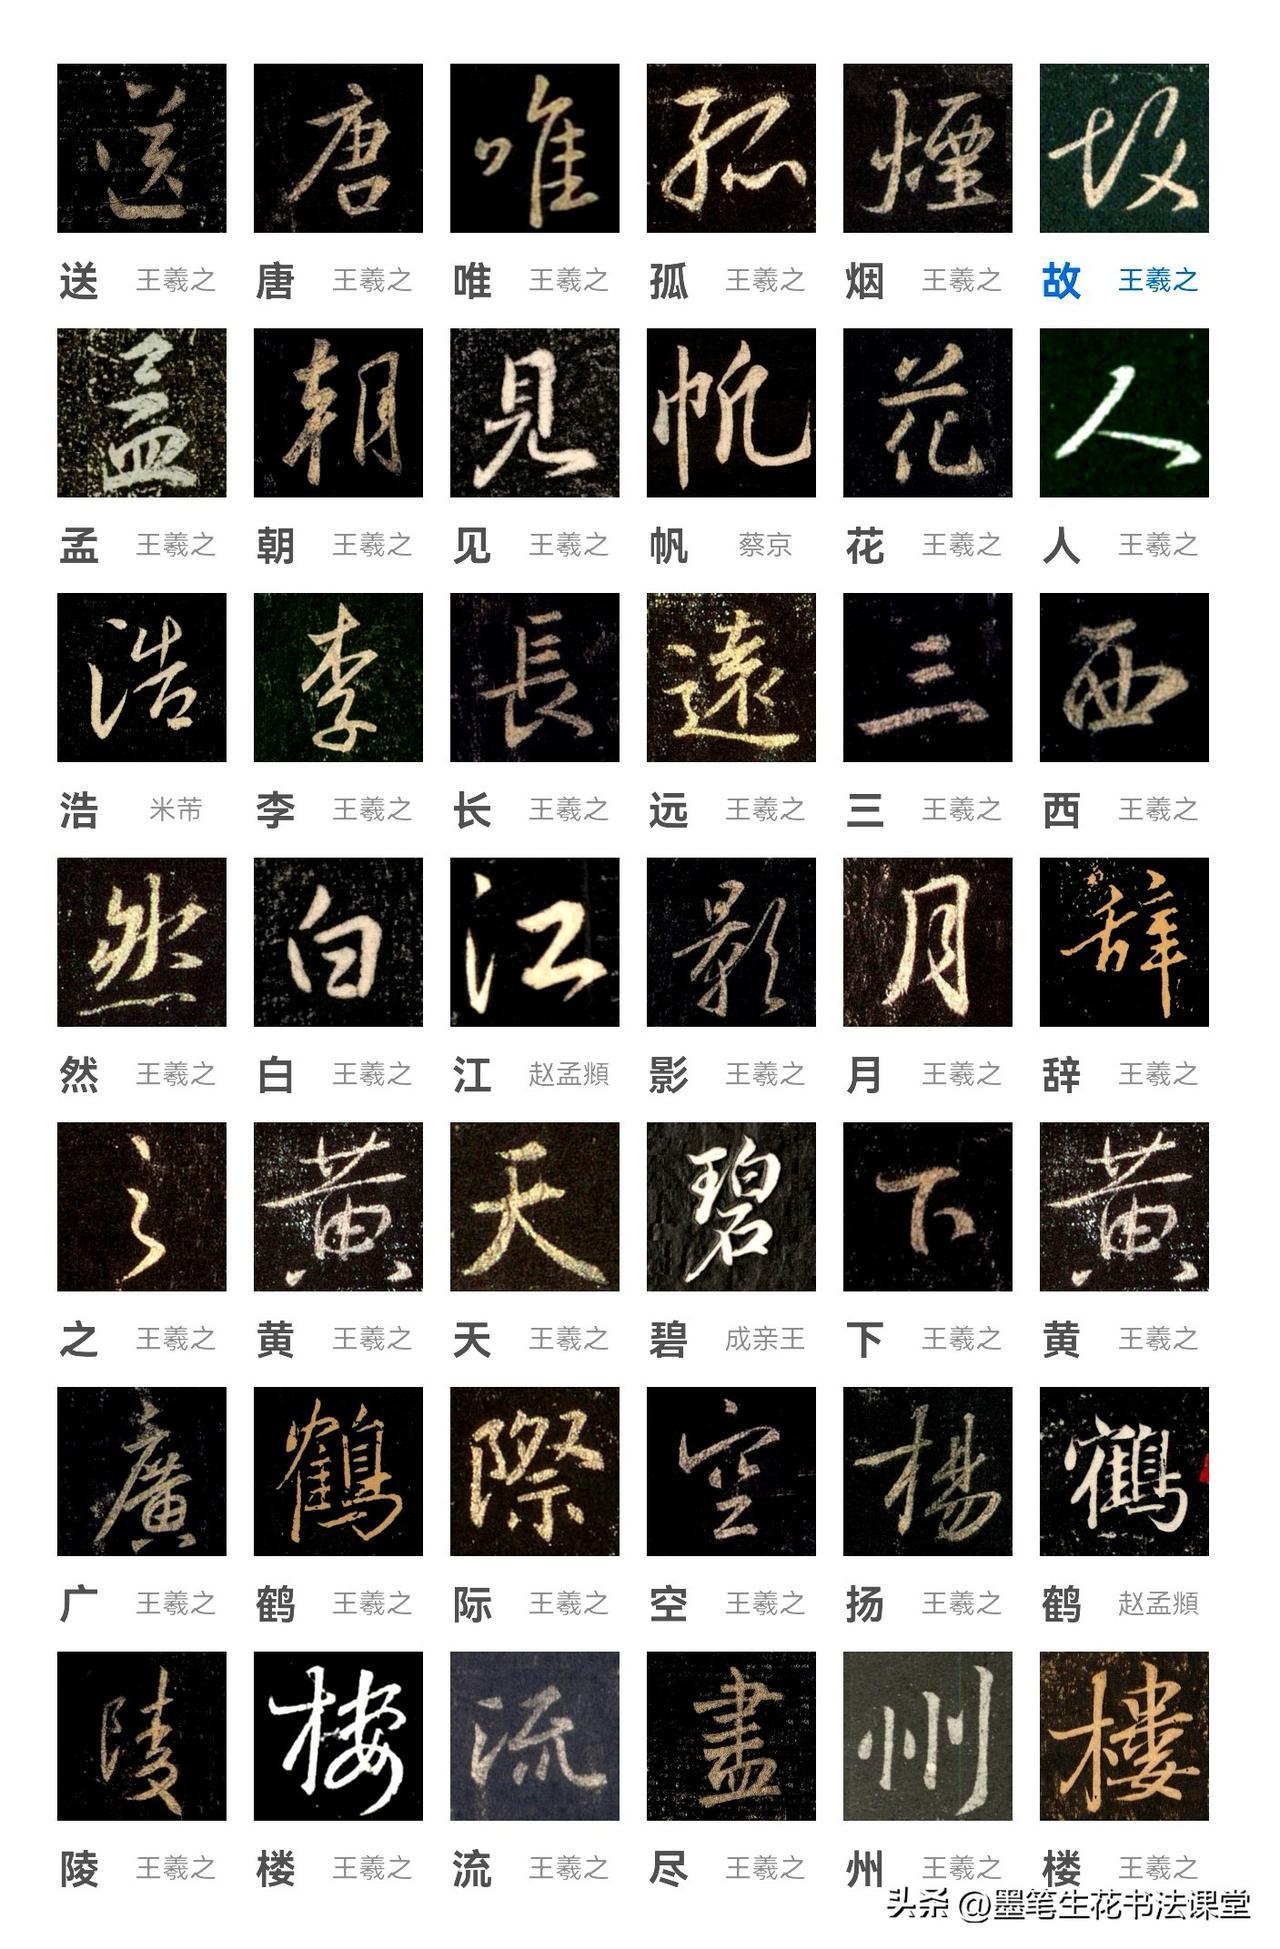 送 唐 唯 孤 煙 故
送 王羲之 唐 王羲之 唯 王羲之 孤 王羲之 烟 王羲之 故 王羲之
孟 朝 見 帆 花 人
孟 王羲之 朝 王羲之 见 王羲之 帆 蔡京 花 王羲之 人 王羲之
浩 李 長 遠 三 西
浩 米芾 李 王羲之 长 王羲之 远 王羲之 三 王羲之 西 王羲之
然 白 江 影 月 辞
然 王羲之 白 王羲之 江 赵孟頫 影 王羲之 月 王羲之 辞 王羲之
之 黄 天 碧 下 黄
之 王羲之 黄 王羲之 天 王羲之 碧 成亲王 下 王羲之 黄 王羲之
廣 鶴 際 空 楊 鶴
广 王羲之 鹤 王羲之 际 王羲之 空 王羲之 扬 王羲之 鹤 赵孟頫
陵 楼 流 盡 州 樓
陵 王羲之 楼 王羲之 流 王羲之 尽 王羲之 州 王羲之 楼 王羲之
头条 @墨笔生花书法课堂